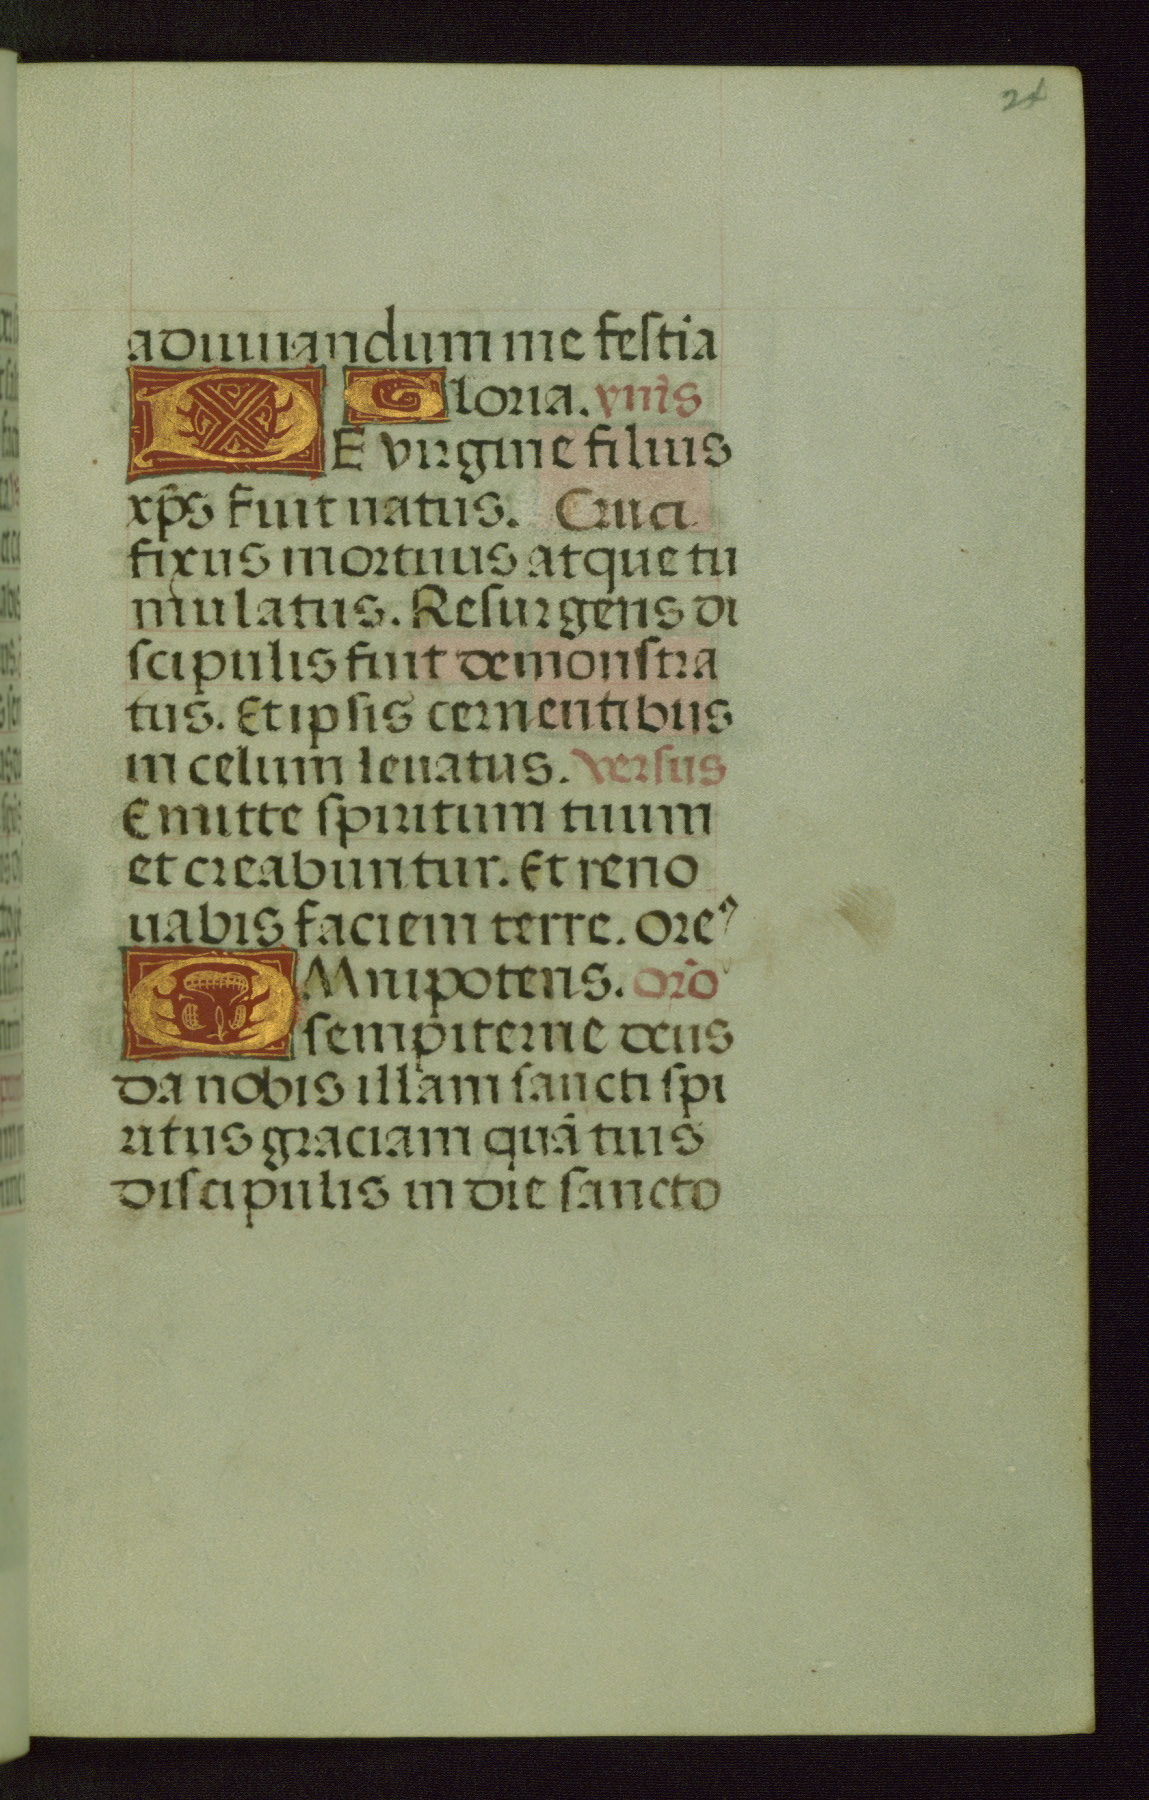 24
adiuuandum me festia
Gloria. ym̄s
DE virgine filius
xp̄s fuit natus. Cruci
fixus mortuus atque tu
mulatus. Resurgens di
scipulis fuit demonstra
tus. Et ipsis cernentibus
in celum leuatus. versus
Emitte spiritum tuum
et creabuntur. Et reno
uabis faciem terre. Ore9
OMnipotens. orō
sempiterne deus
da nobis illam sancti spi
ritus graciam quā tuis
discipulis in die sancto